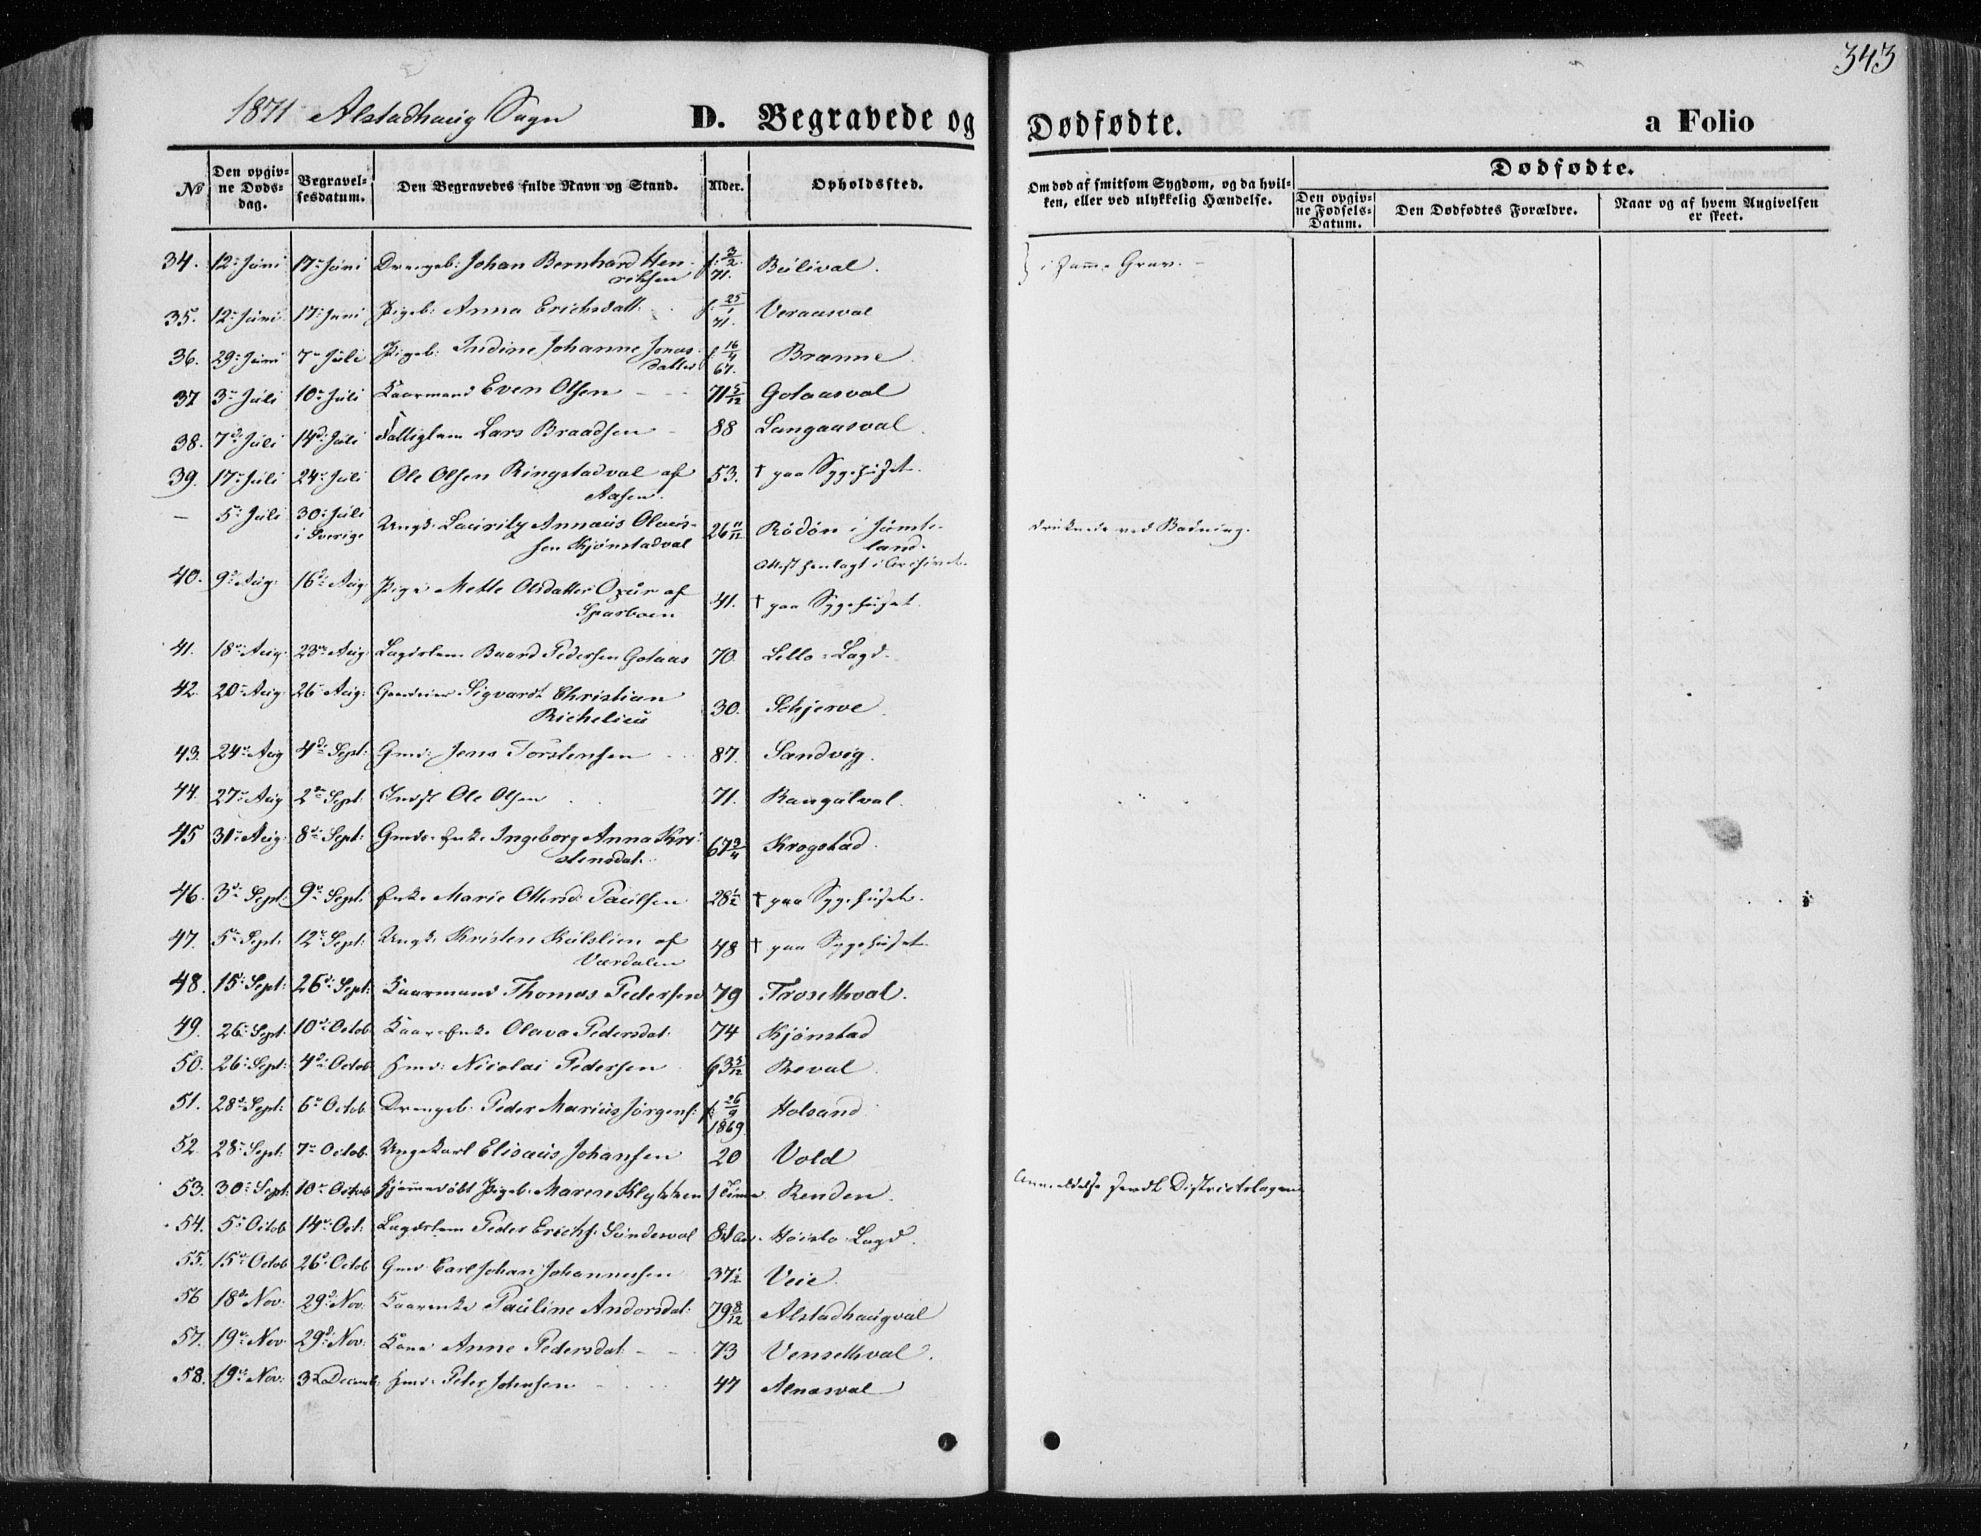 343
1871 Alstadhaug Sogn D. Begravede og Dødfødte. a Folio
No Den opgivne Døds-dag. Begravel-sesdatum. Den Begravedes fulde Navn og Stand. Alder. Opholdssted. Om død af smitsom Sygdom, og da hvilken, eller ved ulykkelig Hændelse. Dødfødte.
Den opgivne Fødsels-Datum. Den Dødfødtes Forældre. Naar og af hvem Angivelsen er skeet.
34. 12te Juni 17de Juni Drengeb: Johan Bernhard Hen- f. 3/2 Búlival. } i samme Grav.
riksen 71.
35. 12te Juni 17de Juni Pigeb: Anna Erichsdatt. f. 25/1 Veraasval
71.
36. 29de Juni 7de Juli Pigeb: Indine Johanne Jonas- f. 16/4 Branne
datter 67.
37 3die Juli 10de Juli Kaarmand Even Olsen 71 5/12 Gotaasval
38. 7de Juli 14de Juli Fattiglem Lars Braadsen 88 Langaasval
39. 17de Juli 24de Juli Ole Olsen Ringstadval af 53. † paa Sygehuset.
Aasen.
– 5te Juli 30te Juli Ungk. Lauritz Annæus Olaus- 26 11/12 Rödön i Jämte- druknede ved Badning.
i Sverige sen Kjönstadval land.
Attest henlagt i Archivet.
40. 9de Aug. 16de Aug Pige Mette Olsdatter Oxur af 41. † paa Sygehuset.
Sparboen
41. 18de Aug. 23de Aug. Lagdslem Baard Pedersen Gotaas 70. Lello Lagd.
42. 20de Aug. 26de Aug: Gaardeier Sigvardt Christian 30. Schjerve.
Richelieú
43. 24de Aug 4de Sept: Gmd: Jens Torstensen 87. Sandvig.
44. 27de Aug 2den Sept: Indst Ole Olsen 71. Rangúlval.
45 31te Aug. 8de Sept: Gmds. Enke Ingeborg Anna Kri- 67 3/4 Krogstad.
stensdat.
46. 3die Sept: 9de Sept: Enke Marie Ottersd. Paúlsen 28 1/2 † paa Sygehuset.
47. 5te Sept. 12te Sept: Ungk. Kristen Kúlslien af 48 † paa Sygehuset
Værdalen
48. 15de Sept: 26de Sept: Kaarmand Thomas Pedersen 79 Troselhval.
49. 26de Sept: 10de Octob Kaar-Enke Olava Pedersdat. 74 Kjönstad
50. 26de Sept: 4de Octob Hmd: Nicolai Pedersen 63 5/12 Reval.
51. 28de Sept: 6te Octob Drengeb. Peder Marius Jörgens: f. 26/9 Holsand
1869.
52. 28de Sept: 7de Octob. Ungekarl Elisæus Johansen 20 Vold
53. 30te Sept: 10de Octob Hjemmedöbt Pigeb. Maren Klykken 1 Time Renden. Anmeldelse sendt Districtslægen
54. 5te Octob 14de Oct: Lagdslem Peder Erichs. Sundsval 84 Aar. Höislo Lagd.
55. 15de Octob 26de Octob Gmd. Carl Johan Johannessen 37 1/2 Veie.
56 18de Nov: 29de Nov: Kaarenke Pauline Andorsdat: 79 8/12 Alstadhaúgval
57. 19de Nov 29de Nov: Kone Anne Pedersdat 73 Venselhval.
58. 19de Nov: 3die Decemb: Hmd: Peter Johnsen 47 Alnæsval